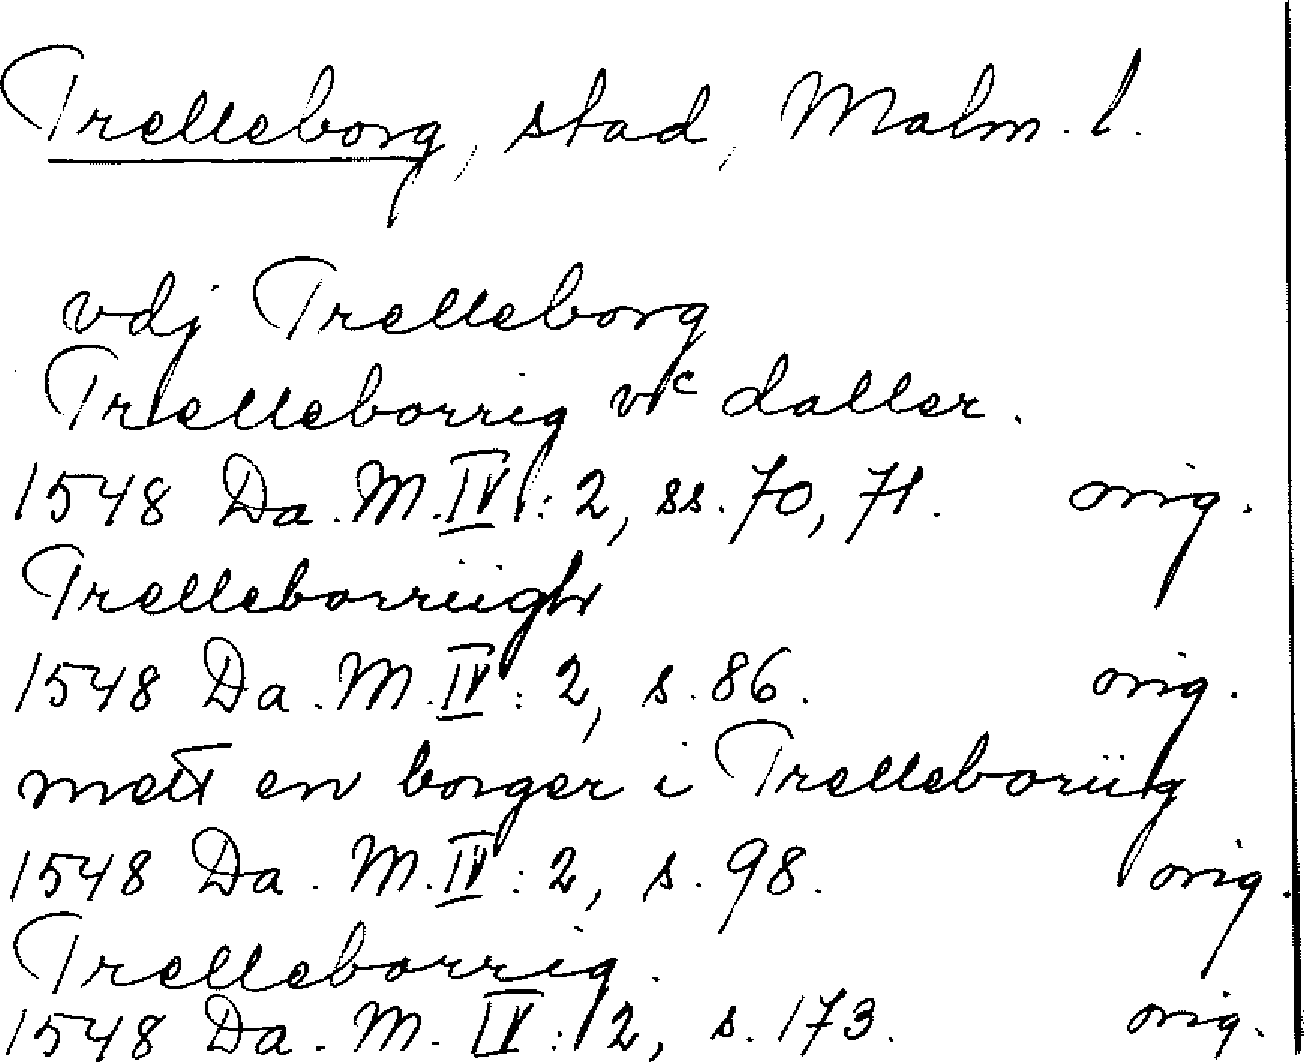 Trelleborg, stad, Malm. l.
vdj Trelleborg
Trelleborrig vᶜ daller.
1548 Da. M. IV: 2, ss. 70, 71. orig.
Trelleborriigh
1548 Da. M. IV: 2, s. 86. orig.
mett en borger i Trelleboriig
1548 Da. M. IV: 2, s. 98. orig.
Trelleborrig.
1548 Da. M. IV: 2, s. 173. orig.